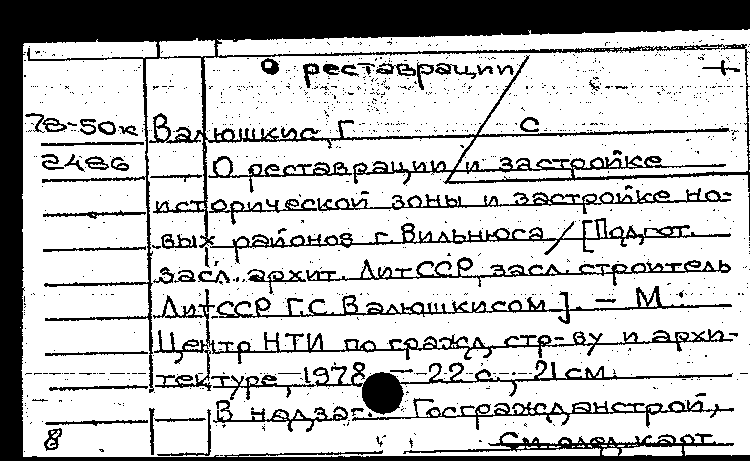 О реставрации +
78-50к Валюшкис, Г С
2486 О реставрации и застройке
исторической зоны и застройке но-
вых районов г. Вильнюса / [Подгот.
засл. архит. ЛитССР, засл. строитель
ЛитССР Г.С. Валюшкисом]. — М.:
Центр НТИ по гражд. стр-ву и архи-
тектуре, 1978. — 22 с.; 21 см.
В надзаг.: Госгражданстрой,
8 См. след. карт.